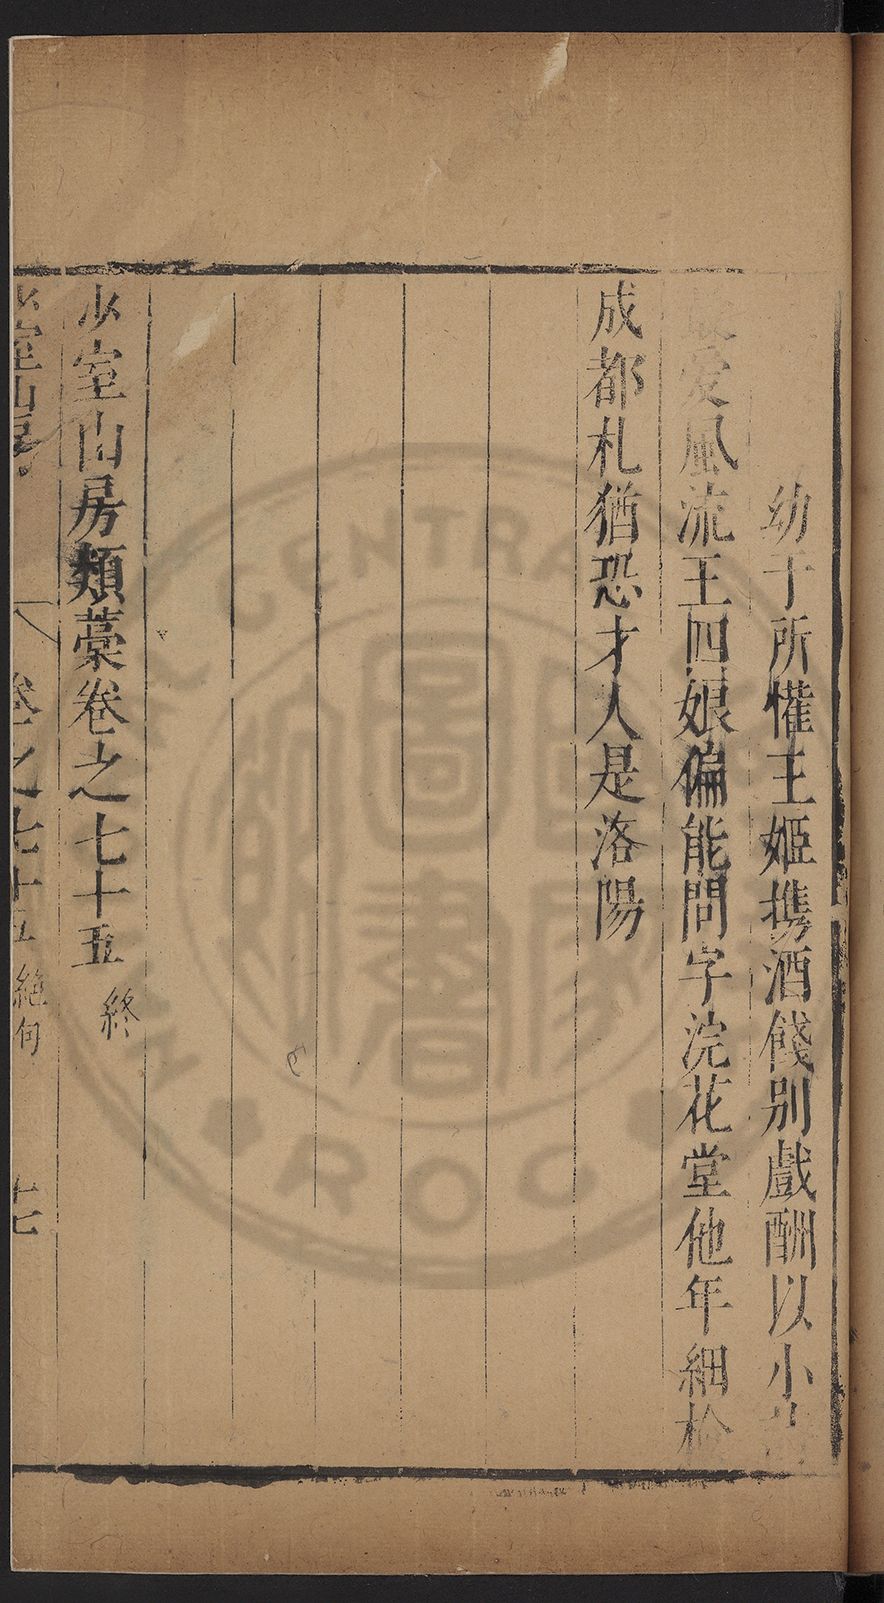 幼于所懽王姬携酒餞别戲酬以小
愛風流王四娘偏能問字浣花堂他年細檢
成都札猶恐才人是洛陽
少室山房類藁卷之七十五 終
少室山房 卷之七十五 絶句 十七
CENTRAL
ROC
圖書